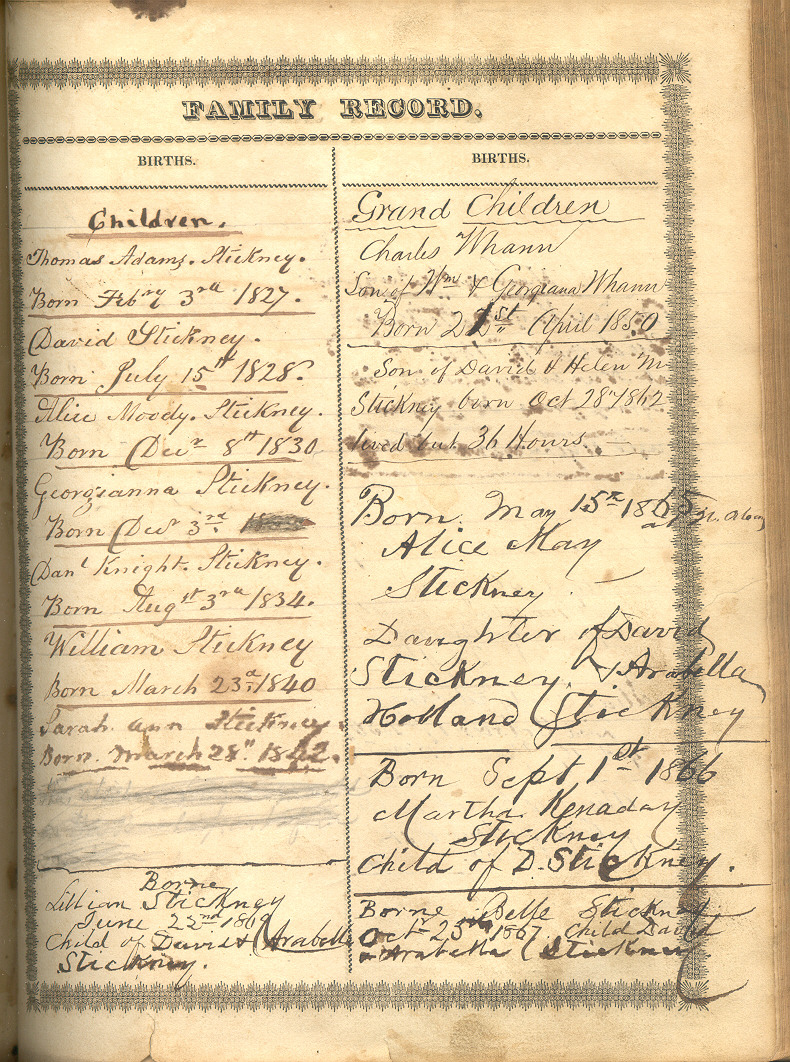 FAMILY RECORD.
BIRTHS.
Children.
Thomas Adams. Stickney.
Born Febry 3rd 1827.
David Stickney.
Born July 15th 1828.
Alice Moody. Stickney.
Born Decr 8th 1830
Georgianna Stickney.
Born Decr 3rd
Danl Knight. Stickney.
Born Augst 3rd 1834.
William Stickney
Born March 23d 1840
Sarah ann Stickney.
Born. March 28th 1842.
Borne
Lillian Stickney
June 22nd 1869
Child of David & Arabella
Stickney.
BIRTHS.
Grand Children
Charles Whann
Son of Wm & Georgiana Whann
Born 21st April 1850
Son of David & Helen M
Stickney born Oct 28th 1862
lived but 36 Hours
Born May 15th 1865 at N. Albany
Alice May
Stickney
Daughter of David
Stickney & Arabella
Holland Stickney
Born Sept 1st 1866
Martha Kenaday
Stickney
Child of D. Stickney.
Borne Belle Stickney
Oct 25th 1867 Child David
& Arabella Stickney